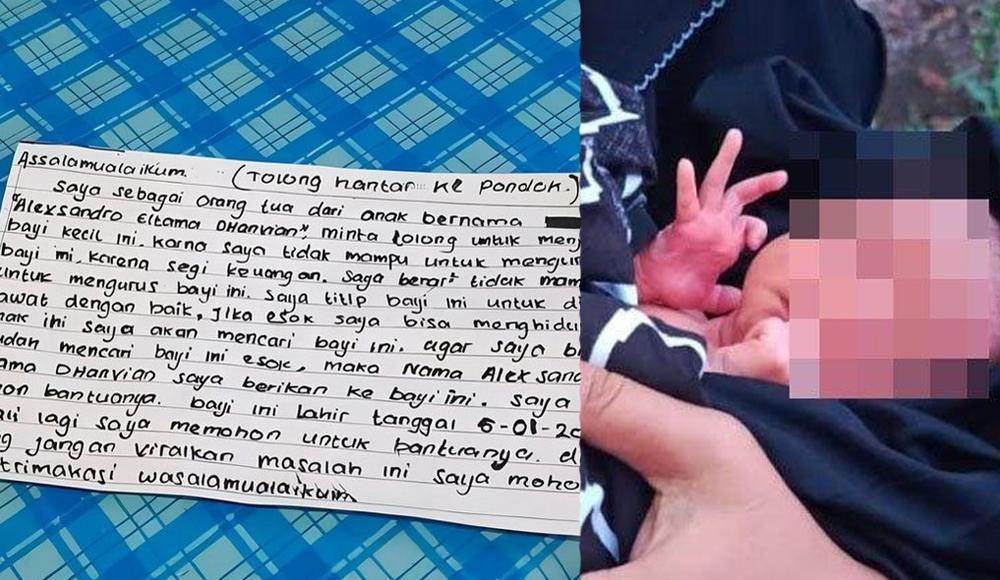 Assalamualaikum. (Tolong hantar ke pondok.)
Saya sebagai orang tua dari anak bernama
"Alexsandro Eltama DHanvian", minta tolong untuk
bayi kecil ini. karna saya tidak mampu untuk
bayi ini, karena segi keuangan. saya berar² tidak
untuk mengurus bayi ini. saya titip bayi ini untuk
dengan baik, jika esok saya bisa
ini saya akan mencari bayi ini. agar saya
mencari bayi ini esok, maka Nama
DHanvian saya berikan ke bayi ini. saya
bantuanya. bayi ini lahir tanggal 6-01-
lagi saya memohon untuk bantuanya.
jangan viralkan masalah ini saya
trimakasi wasalamualaikum